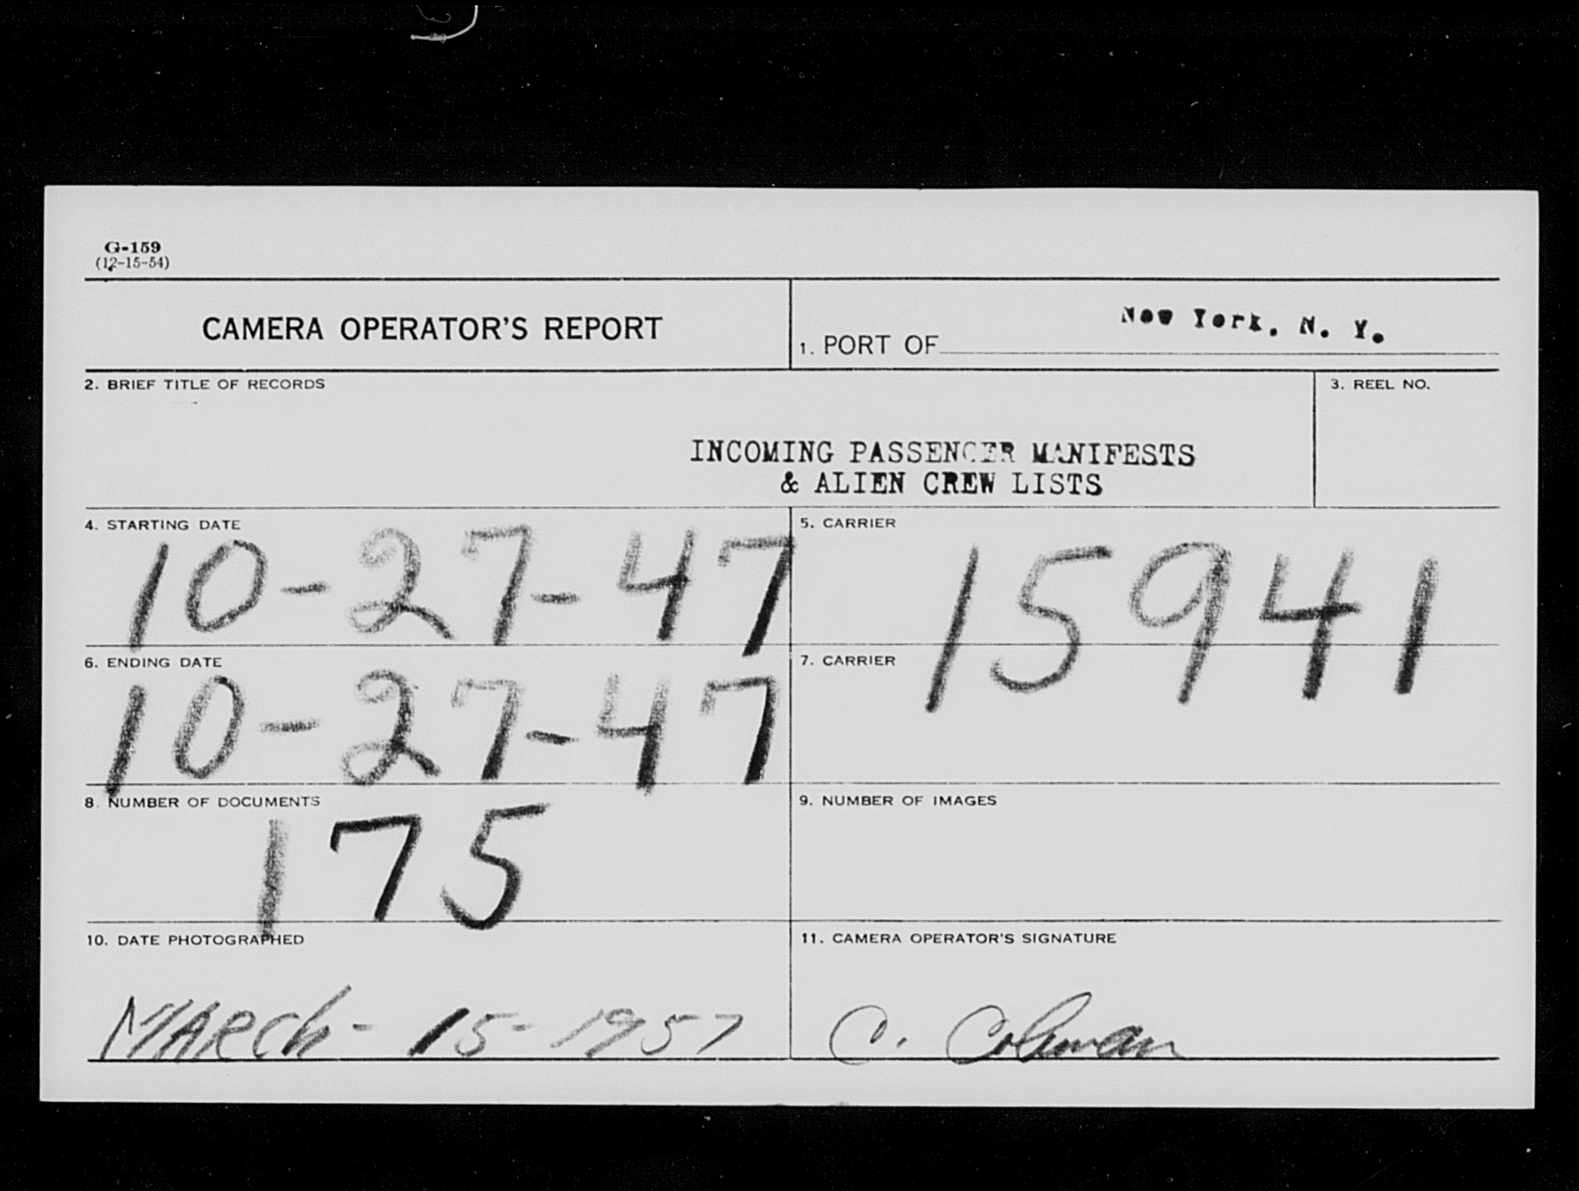 G-159
(12-15-54)
CAMERA OPERATOR'S REPORT
1. PORT OF New York, N. Y.
2. BRIEF TITLE OF RECORDS
3. REEL NO.
INCOMING PASSENGER MANIFESTS
& ALIEN CREW LISTS
4. STARTING DATE
10-27-47
5. CARRIER
15941
6. ENDING DATE
10-27-47
7. CARRIER
8. NUMBER OF DOCUMENTS
175
9. NUMBER OF IMAGES
10. DATE PHOTOGRAPHED
MARCh - 15 - 1957
11. CAMERA OPERATOR'S SIGNATURE
C. Coleman